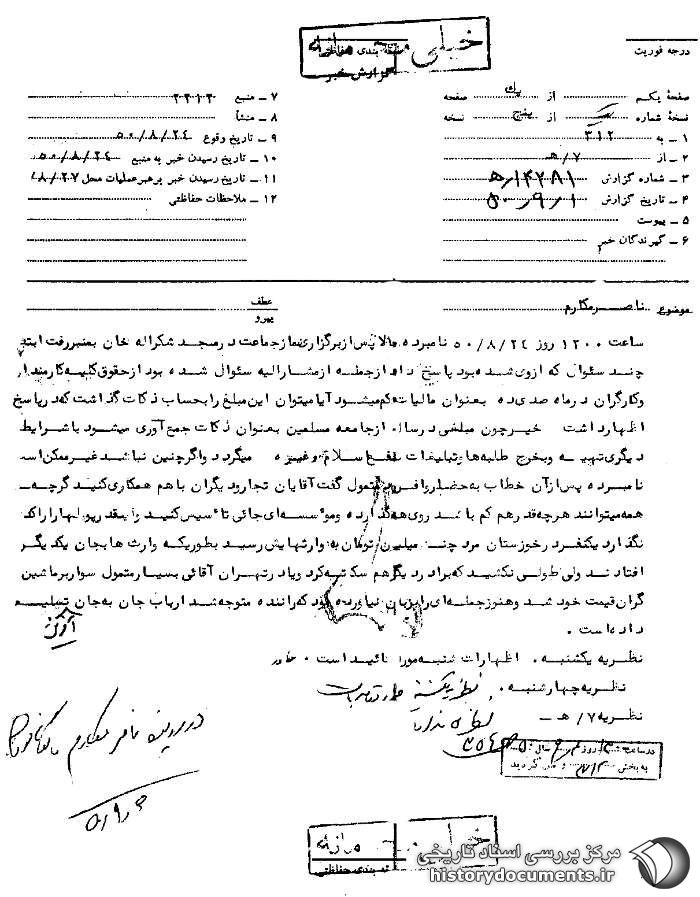 خیلی محرمانه
طبقه بندی حفاظتی
گزارش خبر
درجه فوریت
صفحهٔ یکم از یک صفحه
نسخهٔ شماره یک از پنج نسخه
۱ – به ۳۱۲
۲ – از ۷/ هـ
۳ – شماره گزارش ۱۴۲۸۱/ هـ
۴ – تاریخ گزارش ۵۰/۹/۱
۵ – پیوست
۶ – گیرندگان خبر
۷ – منبع ۲۲۱۳
۸ – منشأ
۹ – تاریخ وقوع ۵۰/۸/۲۴
۱۰ – تاریخ رسیدن خبر به منبع ۵۰/۸/۲۴
۱۱ – تاریخ رسیدن خبر برهبر عملیات محل ۸/۲۷/
۱۲ – ملاحظات حفاظتی
موضوع ناصر مکارم
عطف
پیرو
ساعت ۱۲۰۰ روز ۵۰/۸/۲۴ نامبرده بالا پس از برگزاری نماز جماعت در مسجد شکراله خان بمنبر رفت ابتدا
چند سئوال که از وی شده بود پاسخ داد از جمله از مشارالیه سئوال شده بود از حقوق کلیه کارمندان
و کارگران در ماه صدی ده بعنوان مالیات کم میشود آیا میتوان این مبلغ را بحساب زکات گذاشت که در پاسخ
اظهار داشت خیر چون مبلغی در سال از جامعه مسلمین بعنوان زکات جمع آوری میشود با شرایط
دیگری تهیه و بخرج طلبه ها و تبلیغات بنفع اسلام و غیره میگردد و اگر چنین نباشد غیر ممکن است
نامبرده پس از آن خطاب به حضار و افراد متمول گفت آقایان تجار و دیگران با هم همکاری کنید گرچه
همه میتوانند هر چه قدر هم کم باشد روی هم گذارده و موسسه ای جائی تأسیس کنید و اینقدر پولها را راکد
نگذارید یکنفر در خوزستان مرد چند میلیون تومان به وارثهایش رسید بطوریکه وارث ها بجان یکدیگر
افتادند ولی طولی نکشید که برادر دیگر هم سکته کرد و یا در تهران آقائی بسیار متمول سوار بر ماشین
گران قیمت خود شد و هنوز جمله ای را بزبان نیاورده بود که راننده متوجه شد ارباب جان به جان تسلیم
داده است .
نظریه یکشنبه . اظهارات شنبه مورد تائید است . خاور
نظریه چهارشنبه . نظریه یکشنبه مورد تائید است
نظریه ۷/ هـ – نظری ندارد
در ساعت روز سال ۵۰
به بخش ۳۱۲ گردید
در پرونده ناصر مکارم
۵۰/۹/۳
خیلی محرمانه
طبقه بندی حفاظتی
مرکز بررسی اسناد تاریخی
historydocuments.ir